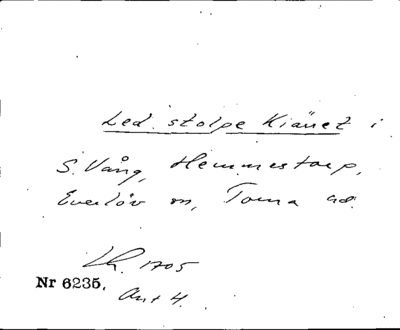 Led. stolpe Kiäret i
S. Vång, Hemmestorp,
Everlöv sn, Torna hd.
Lh. 1705
Nr 6235.
Akt 4.